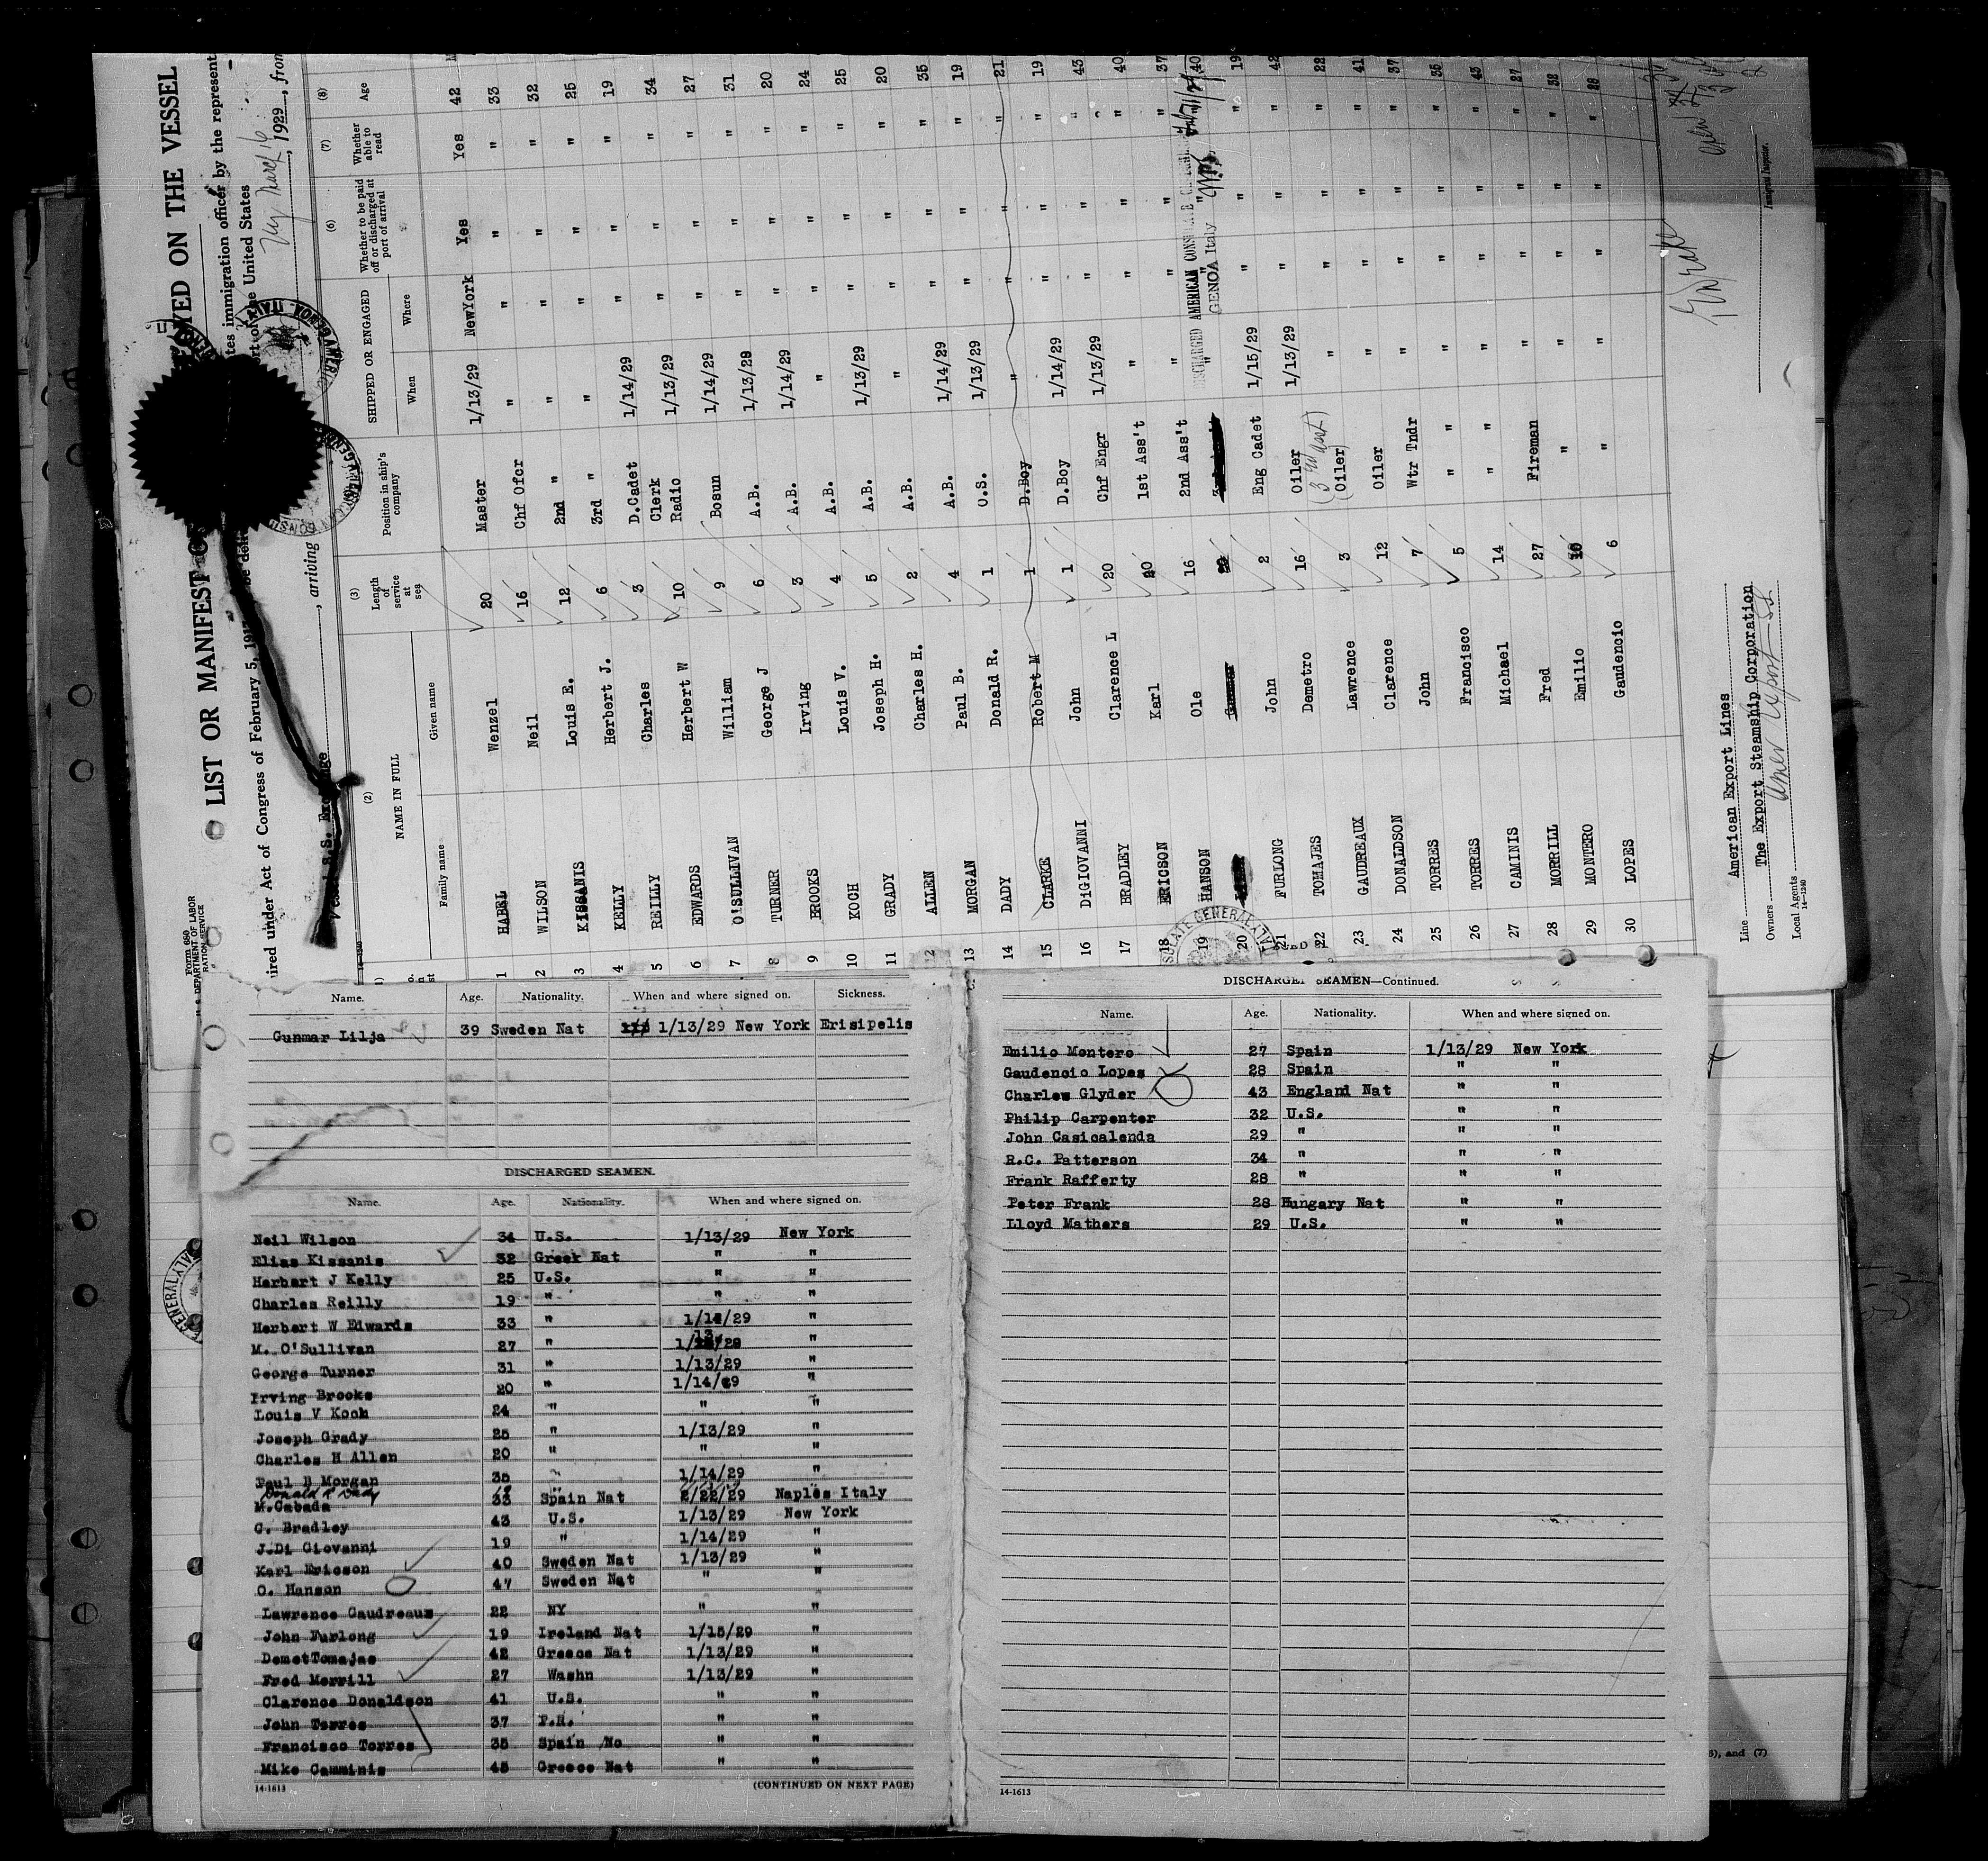 Form 680
U. S. DEPARTMENT OF LABOR
RATION SERVICE
LIST OR MANIFEST OF
YED ON THE VESSEL
ired under Act of Congress of February 5, 1917
be deli
tes immigration officer by the represent
Vessel S.S. Exchange
, arriving
rt of the United States
, 1929, from
(2)
(3)
(6)
(7)
(8)
NAME IN FULL
Length of service at sea
Position in ship's company
SHIPPED OR ENGAGED
Whether to be paid off or discharged at port of arrival
Whether able to read
Age
Family name
Given name
When
Where
1 HABEL Wenzel 20 Master 1/13/29 NewYork Yes Yes 42
2 WILSON Neil 16 Chf Ofcr " " " " 33
3 KISSANIS Louis E. 12 2nd " " " " " 32
4 KELLY Herbert J. 6 3rd " " " " " 25
5 REILLY Charles 3 D.Cadet 1/14/29 " " " 19
6 EDWARDS Herbert W 10 Clerk Radio 1/13/29 " " " 34
7 O'SULLIVAN William 9 Bosun 1/14/29 " " " 27
8 TURNER George J 6 A.B. 1/13/29 " " " 31
9 BROOKS Irving 3 A.B. 1/14/29 " " " 20
10 KOCH Louis V. 4 A.B. " " " " 24
11 GRADY Joseph H. 5 A.B. 1/13/29 " " " 25
12 ALLEN Charles H. 2 A.B. " " " " 20
13 MORGAN Paul B. 4 A.B. 1/14/29 " " " 35
14 DADY Donald R. 1 O.S. 1/13/29 " " " 19
15 CLARKE Robert M 1 D.Boy " " " " 21
16 DiGIOVANNI John 1 D.Boy 1/14/29 " " " 19
17 BRADLEY Clarence L 20 Chf Engr 1/13/29 " " " 43
18 ERICSON Karl 20 1st Ass't " " " " 40
19 HANSON Ole 16 2nd Ass't " " " " 37
20 " " " 40
DISCHARGED AMERICAN CONSULATE
GENOA Italy
21 FURLONG John 2 Eng Cadet 1/15/29 " " " 19
22 TOMAJES Demetro 16 Oiler 1/13/29 " " " 42
23 GAUDREAUX Lawrence 3 (Oiler) " " " " 22
24 DONALDSON Clarence 12 Oiler " " " " 41
25 TORRES John 7 Wtr Tndr " " " " 37
26 TORRES Francisco 5 " " " " " " 35
27 CAMINIS Michael 14 " " " " " " 43
28 MORRILL Fred 27 Fireman " " " " 27
29 MONTERO Emilio 10 " " " " " 32
30 LOPES Gaudencio 6 " " " " " 28
Line American Export Lines
Owners The Export Steamship Corporation
Local Agents Amer Export SS
14-1240
Immigrant Inspector.
Name. Age. Nationality. When and where signed on. Sickness.
Gunmar Lilja 39 Sweden Nat 1/13/29 New York Erisipelis
DISCHARGED SEAMEN.
Name. Age. Nationality. When and where signed on.
Neil Wilson 34 U.S. 1/13/29 New York
Elias Kissanis 32 Greek Nat " "
Herbert J Kelly 25 U.S. " "
Charles Reilly 19 " " "
Herbert W Edwards 33 " 1/14/29 "
M. O'Sullivan 27 " 1/13/29 "
George Turner 31 " 1/13/29 "
Irving Brooks 20 " 1/14/29 "
Louis V Koch 24 " " "
Joseph Grady 25 " 1/13/29 "
Charles H Allen 20 " " "
Paul B Morgan 35 " 1/14/29 "
Donald R Dady 19 "
M.Cabada 33 Spain Nat 2/22/29 Naples Italy
C. Bradley 43 U.S. 1/13/29 New York
J.Di Giovanni 19 " 1/14/29 "
Karl Ericson 40 Sweden Nat 1/13/29 "
O. Hanson 47 Sweden Nat " "
Lawrence Gaudreaux 22 NY " "
John Furlong 19 Ireland Nat 1/15/29 "
DemetTomajas 42 Greece Nat 1/13/29 "
Fred Merrill 27 Washn 1/13/29 "
Clarence Donaldson 41 U.S. " "
John Torres 37 P.R. " "
Francisco Torres 35 Spain No " "
Mike Camminis 43 Greece Nat " "
14-1613
(CONTINUED ON NEXT PAGE)
DISCHARGED SEAMEN—Continued.
Name. Age. Nationality. When and where signed on.
Emilio Montero 27 Spain 1/13/29 New York
Gaudencio Lopes 28 Spain " "
Charles Glyder 43 England Nat " "
Philip Carpenter 32 U.S. " "
John Casicalenda 29 " " "
R.C. Patterson 34 " " "
Frank Rafferty 28 " " "
Peter Frank 28 Hungary Nat " "
Lloyd Mathers 29 U.S. " "
14-1613
5), and (7)